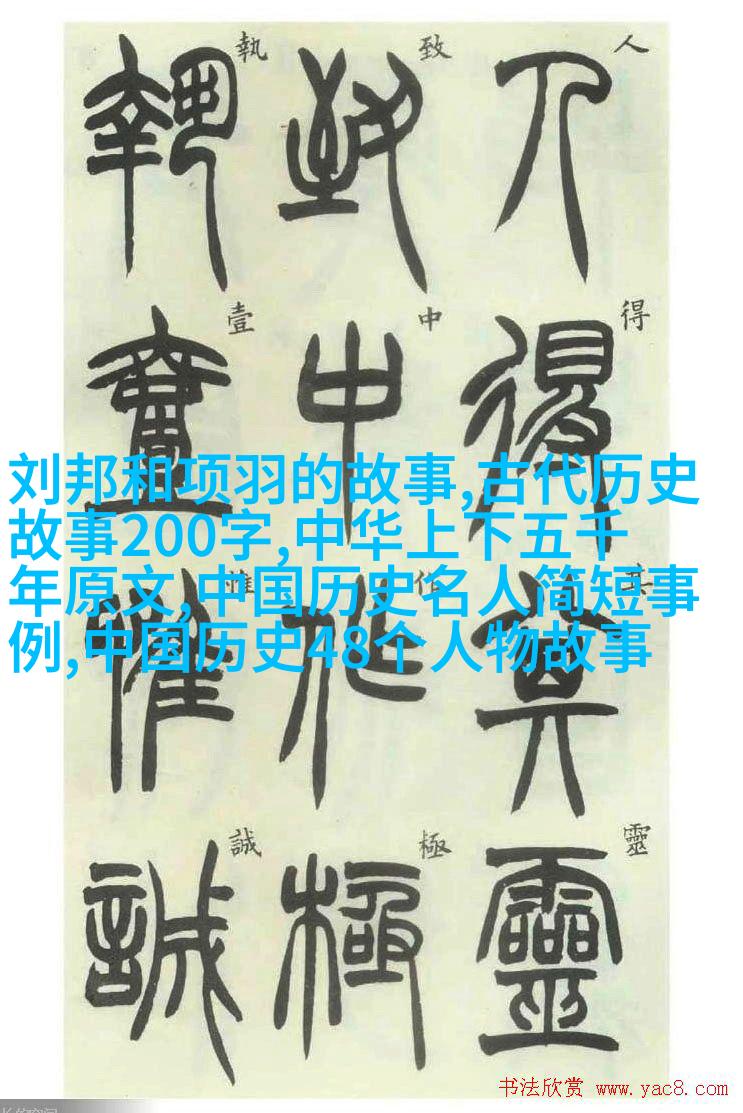 人得其靈
人得其靈
致中作極
致中作極
執壹惟誠
執壹惟誠
刘邦和项羽的故事,古代历史
故事200字,中华上下五千
年原文,中国历史名人简短事
例,中国历史48个人物故事
书法欣赏 www.yac8.com